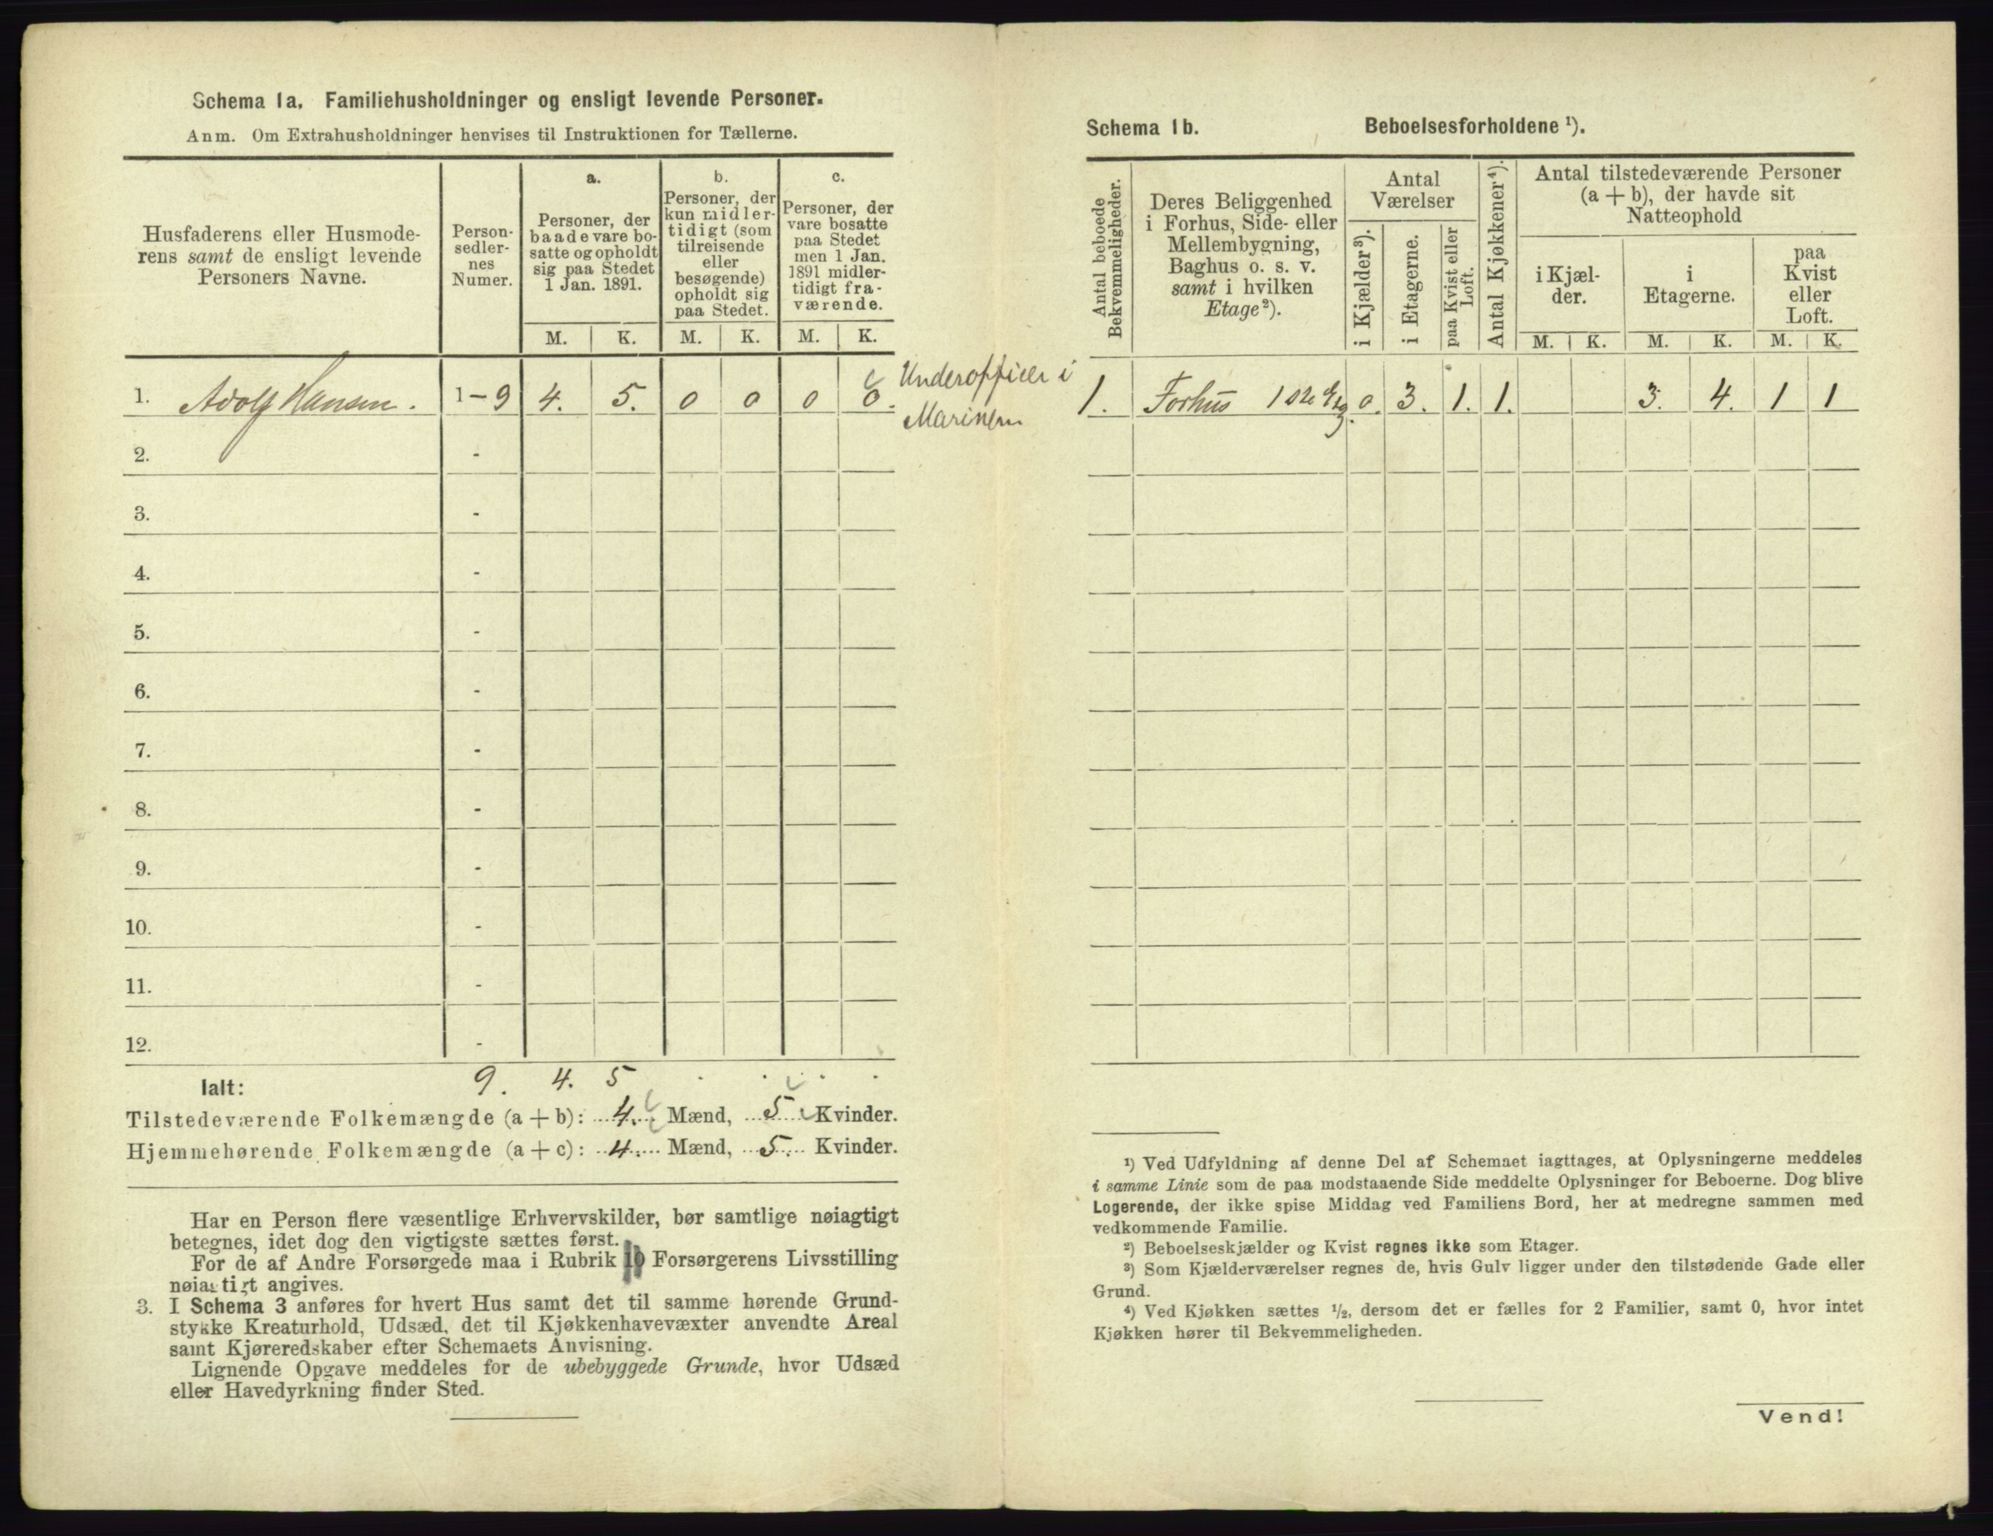 Schema 1a. Familiehusholdninger og ensligt levende Personer.
Anm. Om Extrahusholdninger henvises til Instruktionen for Tællerne.
Husfaderens eller Husmode-
rens samt de ensligt levende
Personers Navne.
Person-
sedler-
nes
Numer.
a.
Personer, der
baade vare bo-
satte og opholdt
sig paa Stedet
1 Jan. 1891.
b.
Personer, der
kun midler-
tidigt (som
tilreisende
eller
besøgende)
opholdt sig
paa Stedet.
c.
Personer, der
vare bosatte
paa Stedet
men 1 Jan.
1891 midler-
tidigt fra-
værende.
M. K. M. K. M. K.
1. Adolf Hansen. 1-9 4. 5. 0 0 0 0.
Underofficer i
Marinen
2. -
3. -
4. -
5. -
6. -
7. -
8. -
9. -
10. -
11. -
12. -
Ialt: 9. 4. 5 . . . .
Tilstedeværende Folkemængde (a + b): 4. Mænd, 5 Kvinder.
Hjemmehørende Folkemængde (a + c): 4. Mænd, 5. Kvinder.
Har en Person flere væsentlige Erhvervskilder, bør samtlige nøiagtigt
betegnes, idet dog den vigtigste sættes først.
For de af Andre Forsørgede maa i Rubrik 10 Forsørgerens Livsstilling
nøiagtigt angives.
3. I Schema 3 anføres for hvert Hus samt det til samme hørende Grund-
stykke Kreaturhold, Udsæd, det til Kjøkkenhavevæxter anvendte Areal
samt Kjøreredskaber efter Schemaets Anvisning.
Lignende Opgave meddeles for de ubebyggede Grunde, hvor Udsæd
eller Havedyrkning finder Sted.
Schema 1b. Beboelsesforholdene ¹).
Antal beboede
Bekvemmeligheder.
Deres Beliggenhed
i Forhus, Side- eller
Mellembygning,
Baghus o. s. v.
samt i hvilken
Etage²).
Antal
Værelser
i Kjælder³).
i Etagerne.
paa Kvist eller
Loft.
Antal Kjøkkener⁴).
Antal tilstedeværende Personer
(a + b), der havde sit
Natteophold
i Kjæl-
der.
i
Etagerne.
paa
Kvist
eller
Loft.
M. K. M. K. M. K.
1. Forhus 1ste Etg. 0. 3. 1. 1. 3. 4. 1 1
¹) Ved Udfyldning af denne Del af Schemaet iagttages, at Oplysningerne meddeles
i samme Linie som de paa modstaaende Side meddelte Oplysninger for Beboerne. Dog blive
Logerende, der ikke spise Middag ved Familiens Bord, her at medregne sammen med
vedkommende Familie.
²) Beboelseskjælder og Kvist regnes ikke som Etager.
³) Som Kjælderværelser regnes de, hvis Gulv ligger under den tilstødende Gade eller
Grund.
⁴) Ved Kjøkken sættes ½, dersom det er fælles for 2 Familier, samt 0, hvor intet
Kjøkken hører til Bekvemmeligheden.
Vend!